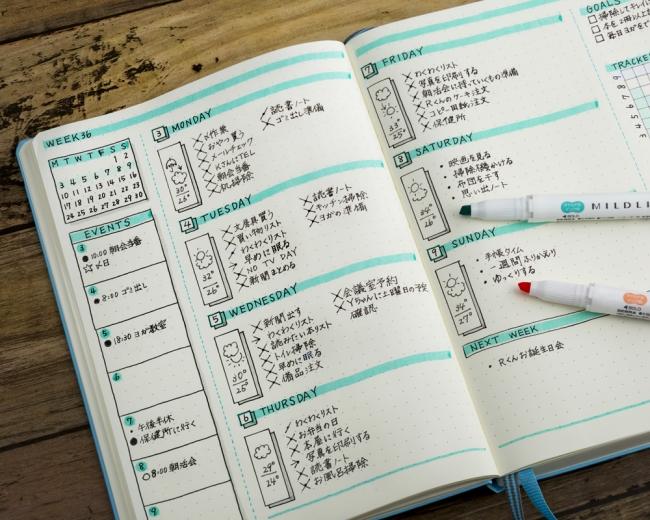 WEEK36
M T W T F S S
1 2
3 4 5 6 7 8 9
10 11 12 13 14 15 16
17 18 19 20 21 22 23
24 25 26 27 28 29 30
EVENTS
3
10:00 朝会当番
〆日
4
8:00 ゴミ出し
5
18:30 ヨガ教室
6
7
午後半休
保健所に行く
8
8:00 朝活会
9
3 MONDAY
30°
25°
〆作業
おやつ買う
メールチェック
KさんにTEL
朝会当番
机掃除
読書ノート
ゴミ出し準備
4 TUESDAY
32°
26°
文房具買う
買い物リスト
わくわくリスト
早めに眠る
NO TV DAY
新聞まとめる
読書ノート
キッチン掃除
ヨガの準備
5 WEDNESDAY
30°
25°
新聞出す
わくわくリスト
読みたい本リスト
トイレ掃除
早めに眠る
備品注文
会議室予約
Yちゃんに土曜日の予
確認
6 THURSDAY
29°
24°
わくわくリスト
お弁当の日
本屋に行く
写真を印刷する
読書ノート
お風呂掃除
7 FRIDAY
33°
25°
わくわくリスト
写真を印刷する
朝活会に持っていくもの準備
Rくんのケーキ注文
コピー用紙注文
保健所
8 SATURDAY
34°
26°
映画を見る
掃除機かける
布団を干す
思い出ノート
9 SUNDAY
34°
27°
手帳タイム
一週間ふりかえり
ゆっくりする
NEXT WEEK
Rくんお誕生日会
GOALS
掃除してキレイ
本を2冊以上
毎日ヨガをで
TRACKE
MILDLI